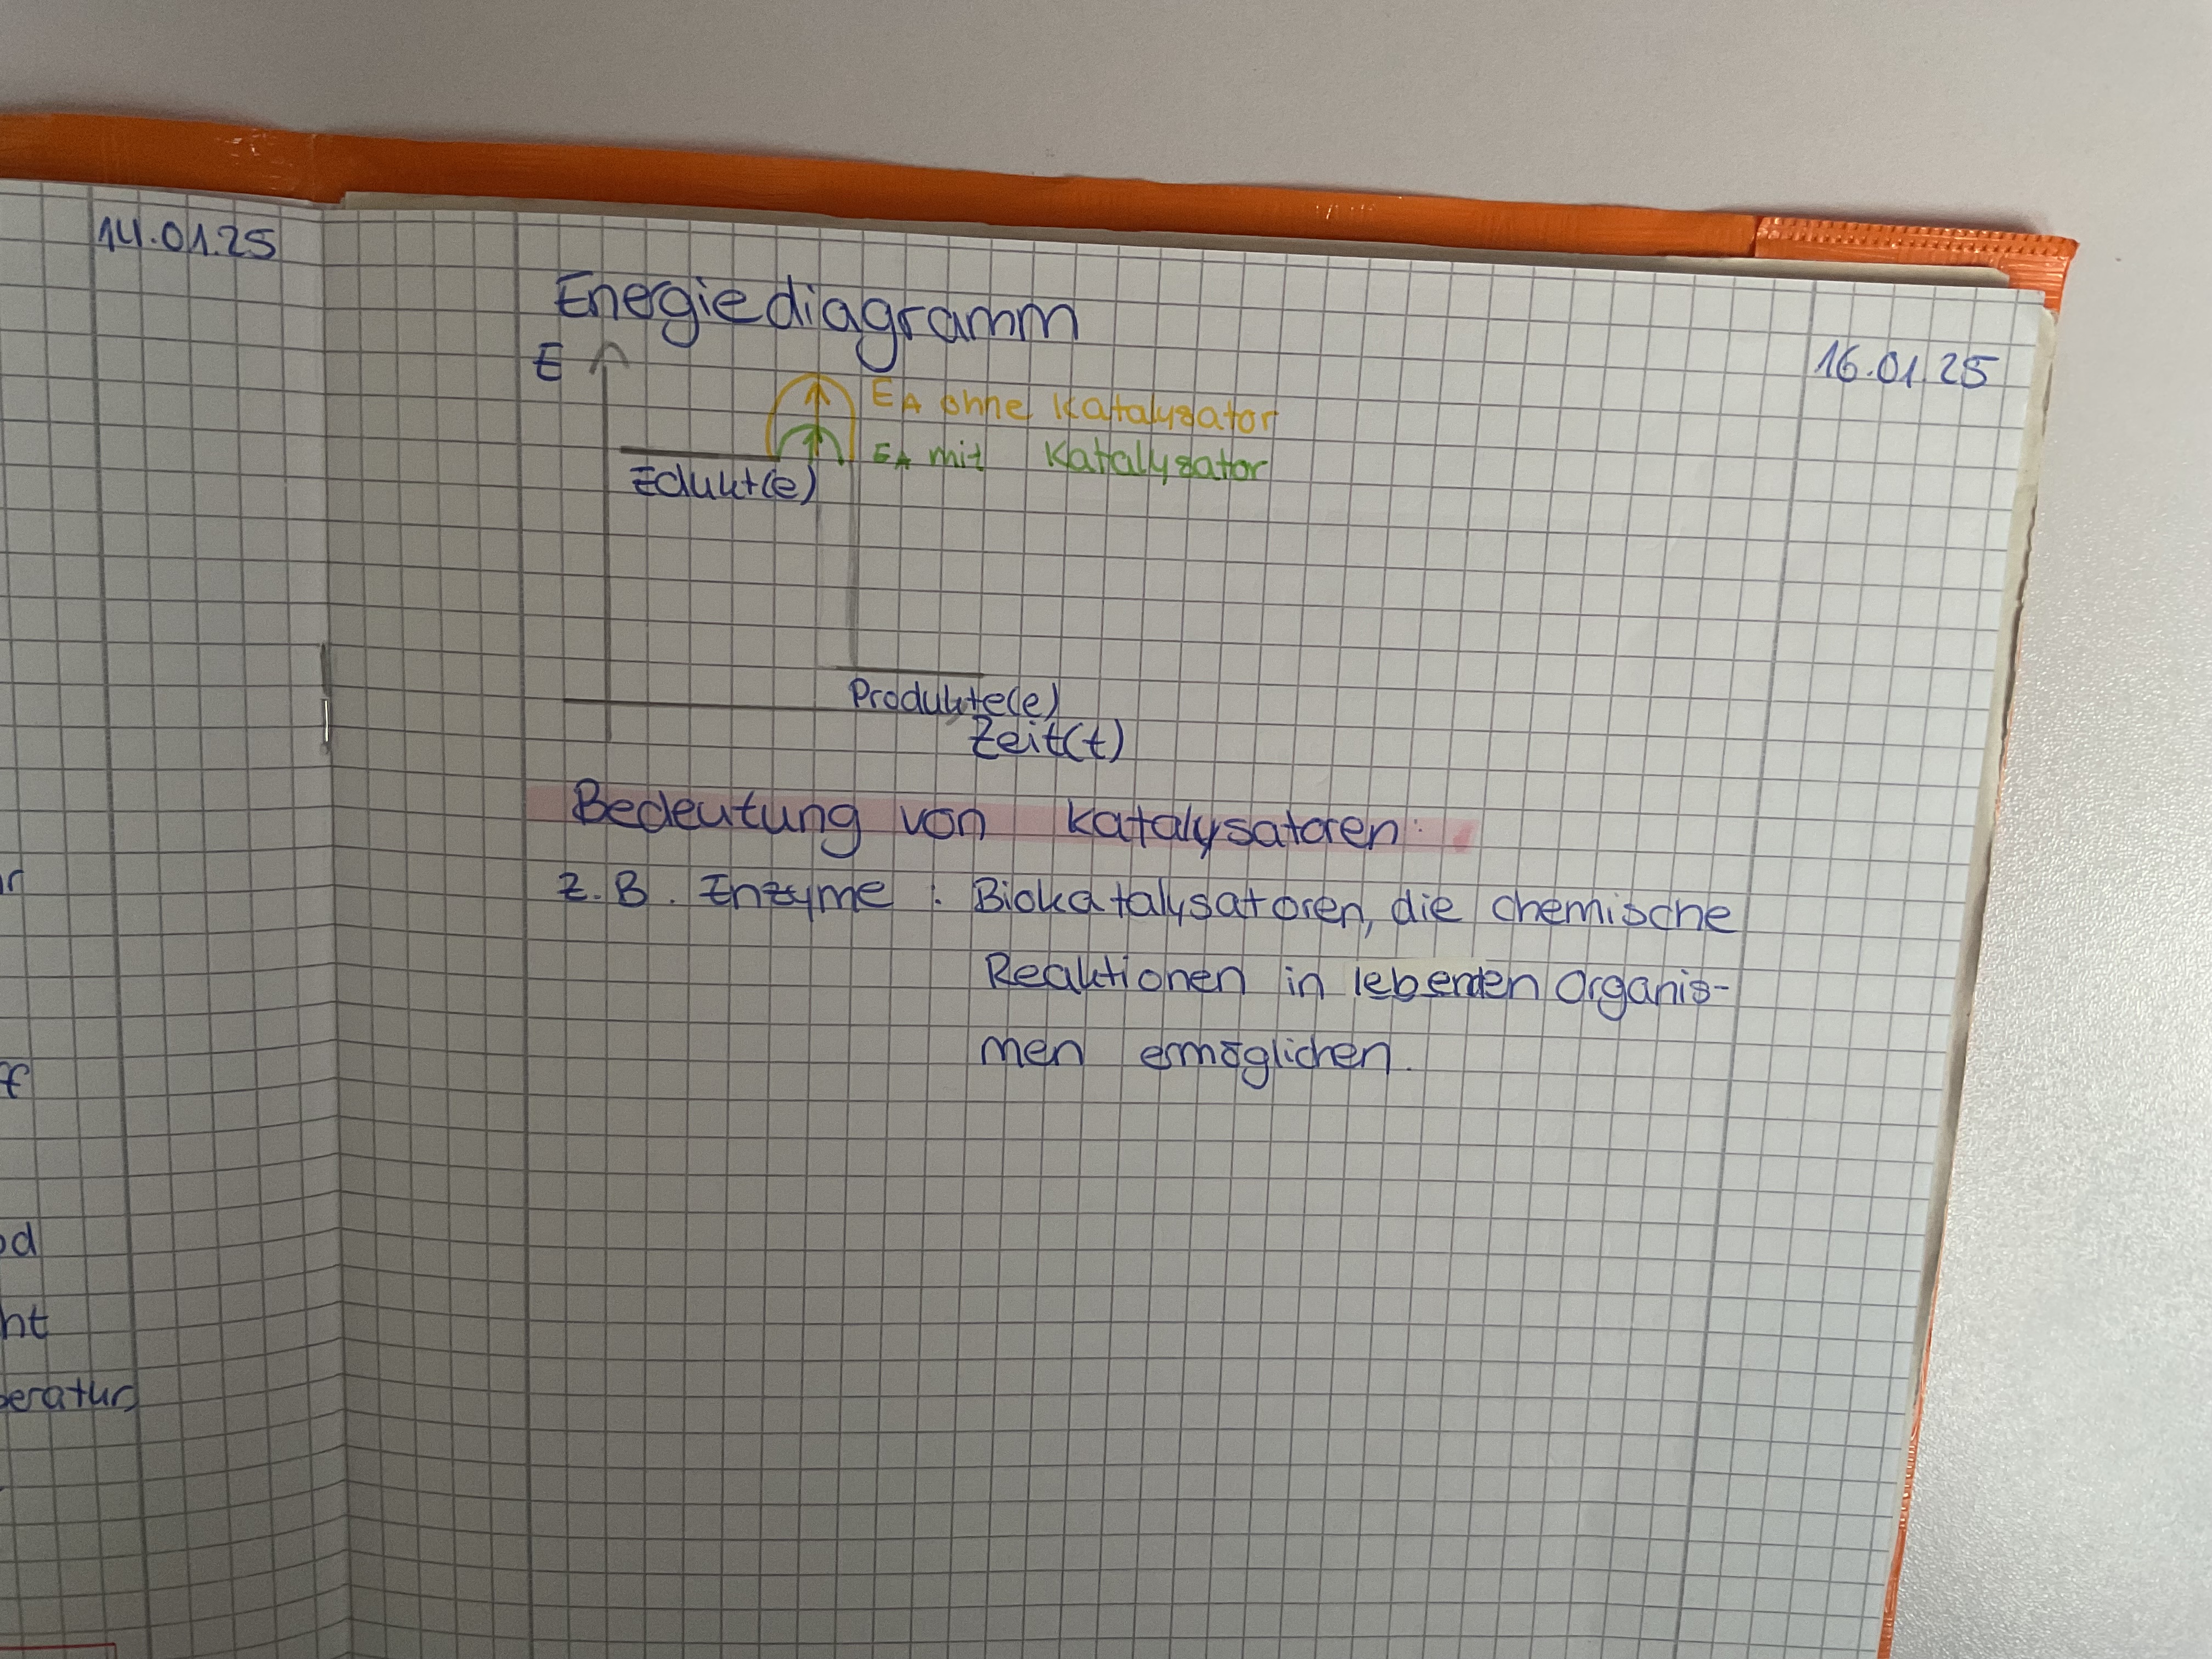 14.01.25
Energiediagramm
16.01.25
E
EA ohne Katalysator
EA mit Katalysator
Edukt(e)
Produkte(e)
Zeit(t)
Bedeutung von Katalysatoren:
z.B. Enzyme : Biokatalysatoren, die chemische
Reaktionen in lebenden Organis-
men ermöglichen.